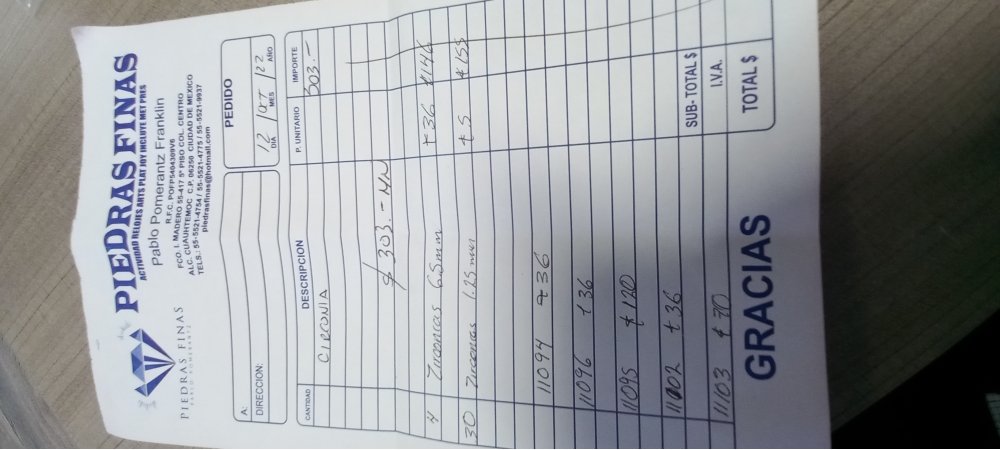 PIEDRAS FINAS
PIEDRAS FINAS
ACTIVIDAD RELOJES ARTS PLAT JOY INCLUYE MET PRES
Pablo Pomerantz Franklin
R.F.C. POFP5404309V6
FCO. I. MADERO 55-417 5° PISO COL. CENTRO
ALC. CUAUHTEMOC C.P. 06250 CIUDAD DE MEXICO
TELS.: 55-5521-4754 / 55-5521-4775 / 55-5521-9937
piedrasfinas@hotmail.com
A:
DIRECCION:
PEDIDO
12 / OCT / 22
DIA MES AÑO
CANTIDAD DESCRIPCION P. UNITARIO IMPORTE
CIRCONIA 303.-
$ 303.- MN
4 Zirconias 6.5mm 36 146
30 Zirconias 1.25 mm 5 155
11094 36
11096 36
11095 120
11002 36
11103 70
SUB-TOTAL $
I.V.A.
GRACIAS TOTAL $